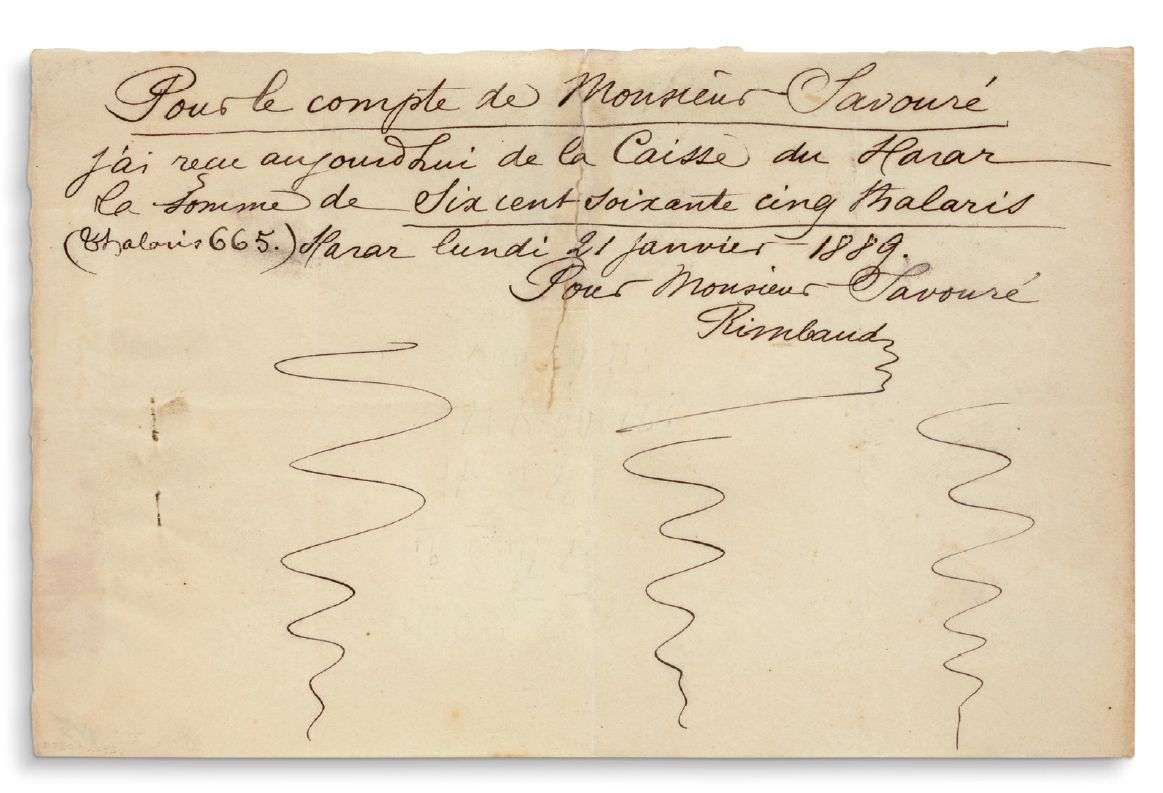 Pour le compte de Monsieur Savouré
j'ai reçu aujourd'hui de la Caisse du Harar
la somme de Six cent soixante cinq thalaris
(Thalaris 665.) Harar lundi 21 janvier 1889.
Pour Monsieur Savouré
Rimbaud